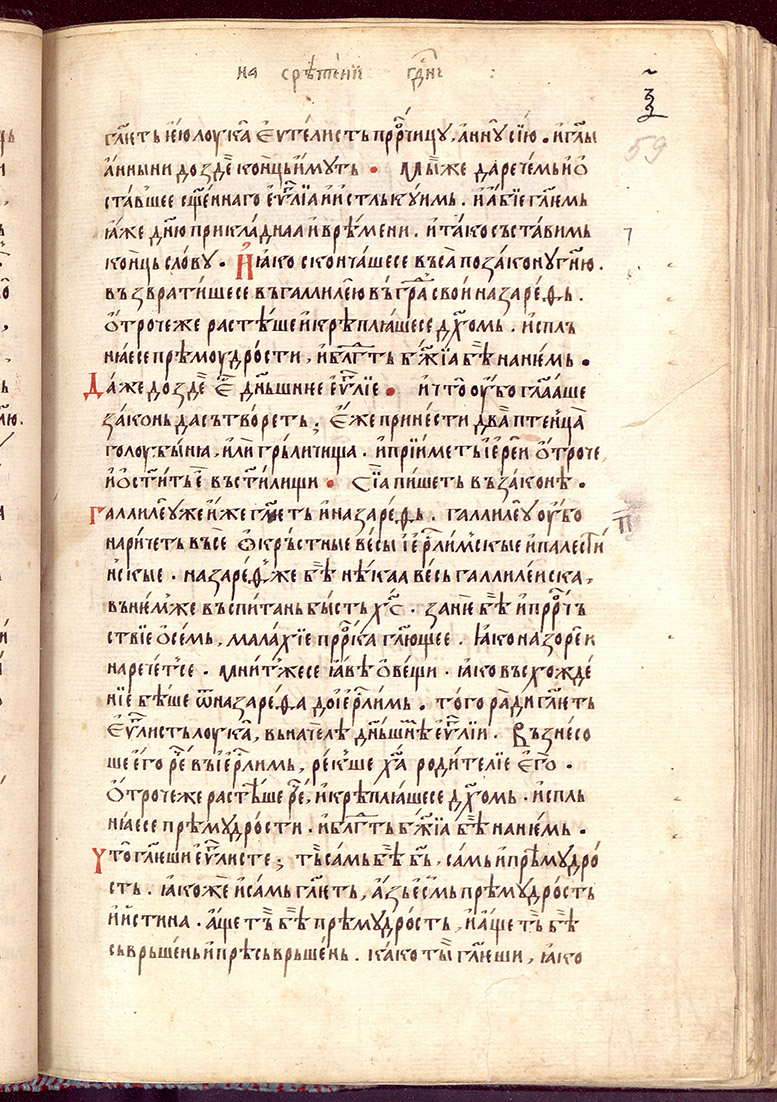 на срѣтенїи гⷭ҇дни
ꙁ҃
59
гл҃ѥть ѥ҆ю лоука̀ е҆ѵⷢ҇елисть прⷪ҇рчицꙋ, а҆ннꙋ сїю . и҆ глы
а҆нныни до зде̏ конць и҆мꙋть • Мы̏ же да речемь и҆ ѡ҆
ста́вшее сщ҃еннаго еѵⷢ҇лїа и҆ и҆стлькꙋимь . и҆ а҆бїе гл҃ѥмь
ꙗ҆же дн҃ю прикладнаа и҆ врѣмени . и҆ тако съставимь
конць словꙋ . И҆ ꙗко сконча́шесе въса̀ по законꙋ гн҃ю .
възвратишесе въ галлиле́ю въ гра́ⷣ свои назаре́ѳь .
ѻ҆троче же растѣ́ше и҆ крѣплꙗ́шесе дх҃омь . и҆спль
нꙗ́ѥсе прѣмоудрости , и҆ блгⷣть бж҃їа бѣ̏ на нѥмь .
Да́же до зде̏ е҆ⷭ҇ днь́шнее еѵⷢ҇лїе • и҆ что̀ ѹ҆бо гл҃а́аше
за́конь да сътвореть ; е҆́же принести два̏ птенца̀
голоубынꙗ , и҆лѝ грьличища . и҆ прїиметь і҆ере́и ѻ҆троче
и҆ ѡ҆ст҃и́ть ѥ̏ въ ст҃илищи • Сїа̏ пи́шеть въ законѣ .
Галлиле́ꙋ же и҆́же гл҃ѥть и҆ назаре́ѳь . галлиле́ꙋ ѹ҆бо
наричеть въсѐ ѻ҆крьстные весы і҆ерⷭ҇лимⷭ҇кые и҆ палести
искые . назаре́ѳ же бѣ̏ нѣ́каа весь галлиле́иска ,
вь нѥ́мже въспитань бы́сть хⷭ҇ . занѐ бѣ̏ и҆ прⷪ҇рчь
ствїе ѻ҆семь , малахїе прⷪ҇рка гл҃ющее . ꙗ҆ко назоре́и
наречетсе . мни́тжесе ꙗ҆вѣ ѻ҆ вещи . ꙗ҆ко въсхожде́
нїе бѣ́ше ѿ назаре́ѳа до і҆ерⷭ҇лимь . то́го ра́ди гл҃ѥть
е҆ѵⷢ҇листь лоука̀ , вь наче́лѣ днь́шнѥ еѵⷢ҇лїи . Възнесо
ше е҆го рⷱ҇е въ і҆ерⷭ҇лимь , ре́кше ха҃ родителїе е҆го̀ .
ѻ҆троче же растѣ́ше рⷱ҇е , и҆ крѣплꙗ́шесе дх҃омь . и҆спль
нꙗ́ѥсе прѣмꙋдрости . и҆ блгⷣть бж҃їа бѣ̏ на нѥмь .
Что̀ гл҃ѥши еѵⷢ҇листе ; ть̏ самь бѣ̏ бь҃ , самь и҆ прѣмꙋдро
сть . ꙗ҆коже и҆ самь гл҃ѥть , а҆зь ѥ҆смь прѣмꙋдрость
и҆ и҆́стина . а҆ще ть̏ бѣ̏ прѣмꙋдрость , и҆ а҆́ще ть̏ бѣ̏
сьврьшень и҆ прѣсьврьшень . како ты̏ гл҃ѥши , ꙗ҆ко